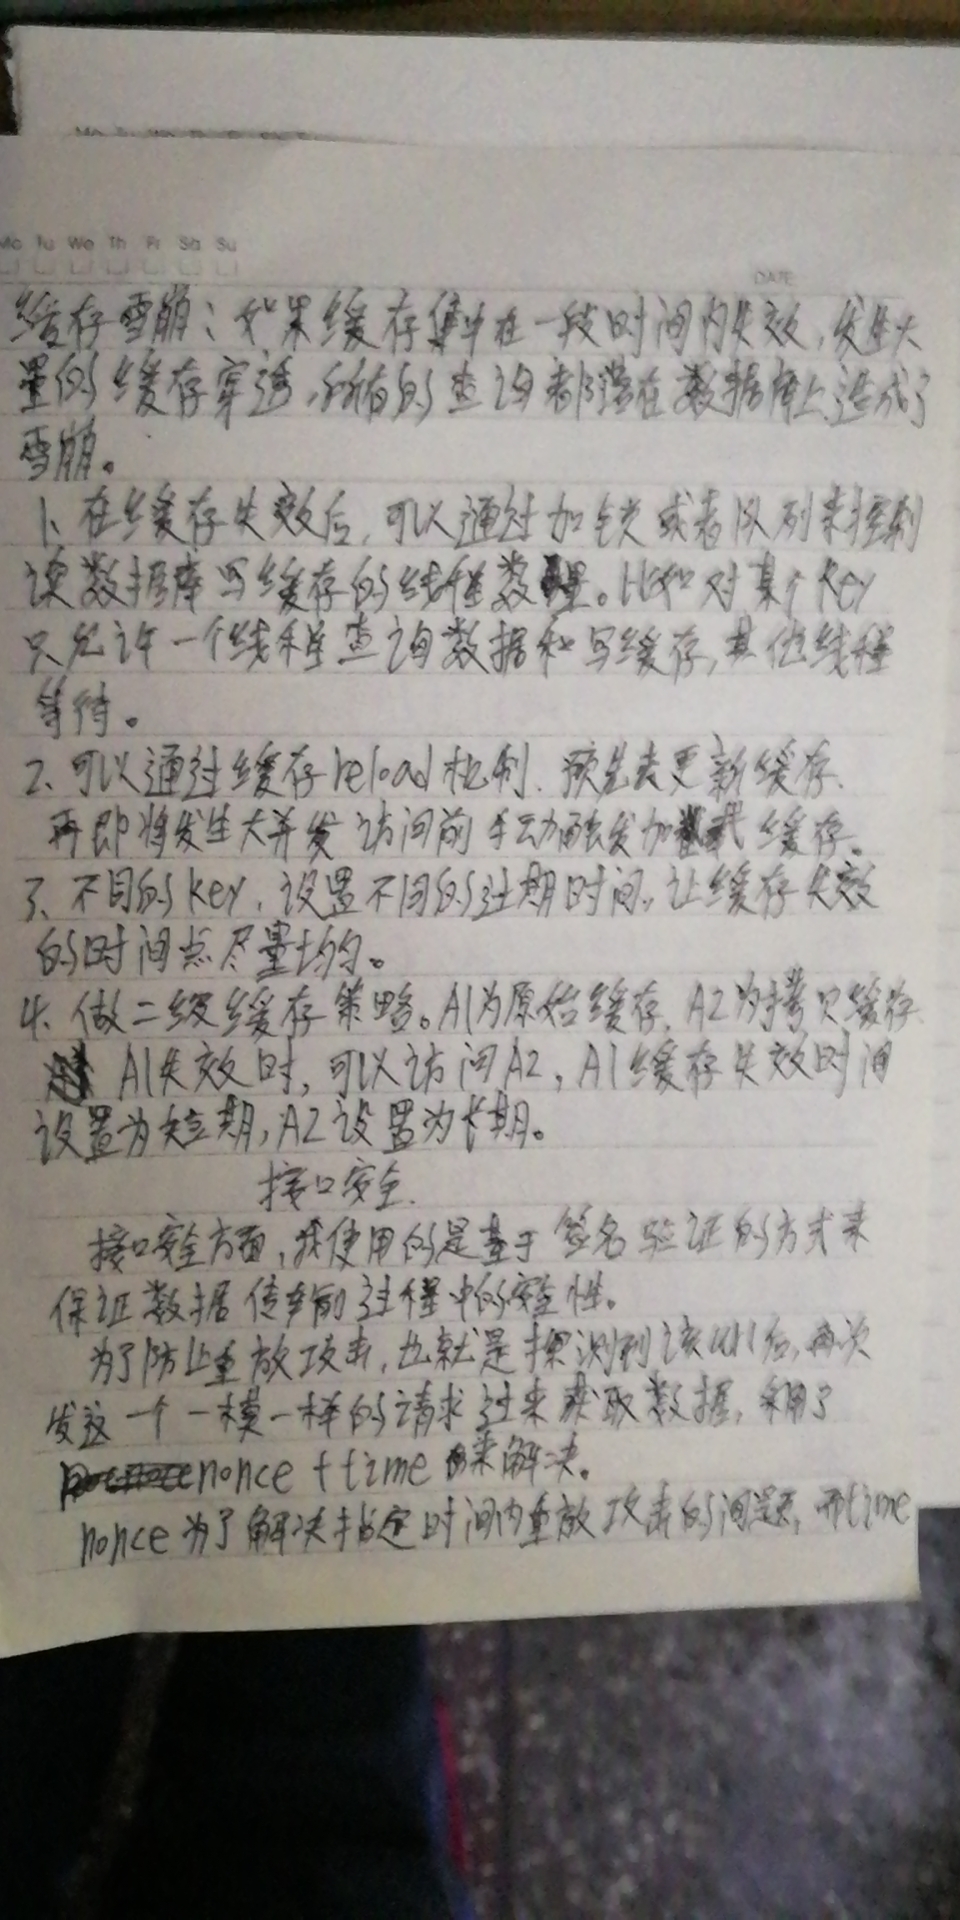 Mo Tu We Th Fr Sa Su
DATE
缓存雪崩：如果缓存集中在一段时间内失效，发生大
量的缓存穿透，所有的查询都落在数据库上，造成了
雪崩。
1、在缓存失效后，可以通过加锁或者队列来控制
读数据库写缓存的线程数量。比如对某个key
只允许一个线程查询数据和写缓存，其他线程
等待。
2、可以通过缓存reload机制、预先去更新缓存、
再即将发生大并发访问前手动触发加载缓存。
3、不同的key，设置不同的过期时间，让缓存失效
的时间点尽量均匀。
4、做二级缓存策略。A1为原始缓存，A2为拷贝缓存
A1失效时，可以访问A2，A1缓存失效时间
设置为短期，A2设置为长期。
接口安全.
接口安全方面，我使用的是基于签名验证的方式来
保证数据传输过程中的安全性。
为了防止重放攻击，也就是探测到该url后，再次
发这一个一模一样的请求过来获取数据，采用了
nonce + time 来解决。
nonce为了解决指定时间内重放攻击的问题，而time